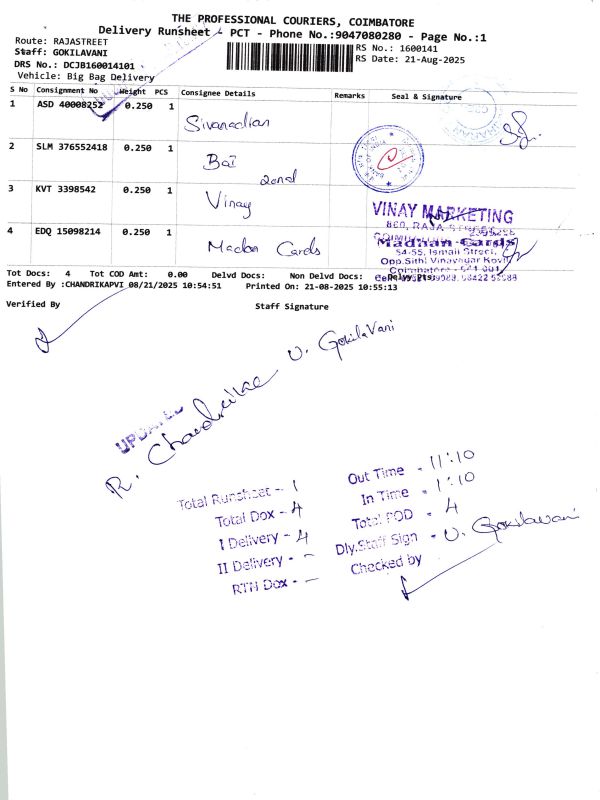 THE PROFESSIONAL COURIERS, COIMBATORE
Delivery Runsheet - PCT - Phone No.:9047080280 - Page No.:1
Route: RAJASTREET
RS No.: 1600141
Staff: GOKILAVANI
RS Date: 21-Aug-2025
DRS No.: DCJB160014101
Vehicle: Big Bag Delivery
S No Consignment No Weight PCS Consignee Details Remarks Seal & Signature
1 ASD 40008252 0.250 1 Sivanadian
2 SLM 376552418 0.250 1 BaI
2and
3 KVT 3398542 0.250 1 Vinay
VINAY MARKETING
4 EDQ 15098214 0.250 1 Madan Cards
Madhan Cards
54-55, Ismail Street,
Opp.Sithi Vinayagar Kovil
Coimbatore - 641 001
Tot Docs: 4 Tot COD Amt: 0.00 Delvd Docs: Non Delvd Docs:
Entered By :CHANDRIKAPVI 08/21/2025 10:54:51 Printed On: 21-08-2025 10:55:13
Verified By Staff Signature
U. GokilaVani
UPDATED
R. Chandrikaa
Total Runsheet - 1
Total Dox - 4
I Delivery - 4
II Delivery - -
RTN Dox - -
Out Time - 11:10
In Time - 1:10
Total POD - 4
Dly.Staff Sign - U. Gokilavani
Checked by